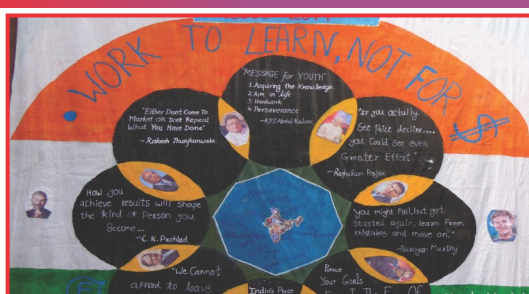 WORK TO LEARN, NOT FOR $
"MESSAGE for YOUTH"
1. Acquring the Knowledge
2. Aim in life
3. Hardwork
4. Perseverance
~APJ Abdul Kalam
"Either Dont Come To
Market OR Dont Repeat
What You Have Done"
~ Rakesh Jhunjhunwala
"If you actully
See Price decline....
you Could see even
Greater Effect".
~Raghuram Rajan
How you
achieve results will shape
the kind of Person you
Become...
~C.K. Prahlad
"you might fall, but get
started again, learn from
mistakes and move on,"
~Narayan Murthy
"We Cannot
afford to leave
India's
Your Goals